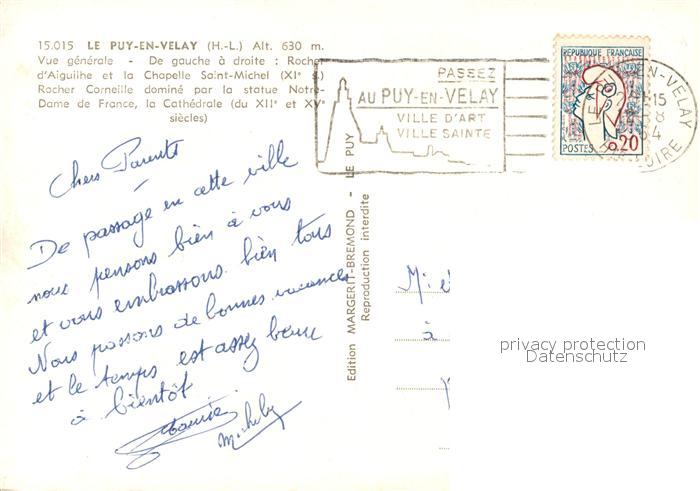 15.015 LE PUY-EN-VELAY (H.-L.) Alt. 630 m.
Vue générale - De gauche à droite : Rocher
d'Aiguilhe et la Chapelle Saint-Michel (XIe s.)
Rocher Corneille dominé par la statue Notre-
Dame de France, la Cathédrale (du XIIe et XVe
siècles)
Chers Parents
De passage en cette ville
nous pensons bien à vous
et vous embrassons bien tous
Nous passons de bonnes vacances
et le temps est assez beau
à bientôt
Edition MARGERIT-BREMOND - LE PUY
Reproduction interdite
PASSEZ
AU PUY-EN-VELAY
VILLE D'ART
VILLE SAINTE
REPUBLIQUE FRANÇAISE
POSTES 0,20
EN-VELAY
LOIRE
à
privacy protection
Datenschutz